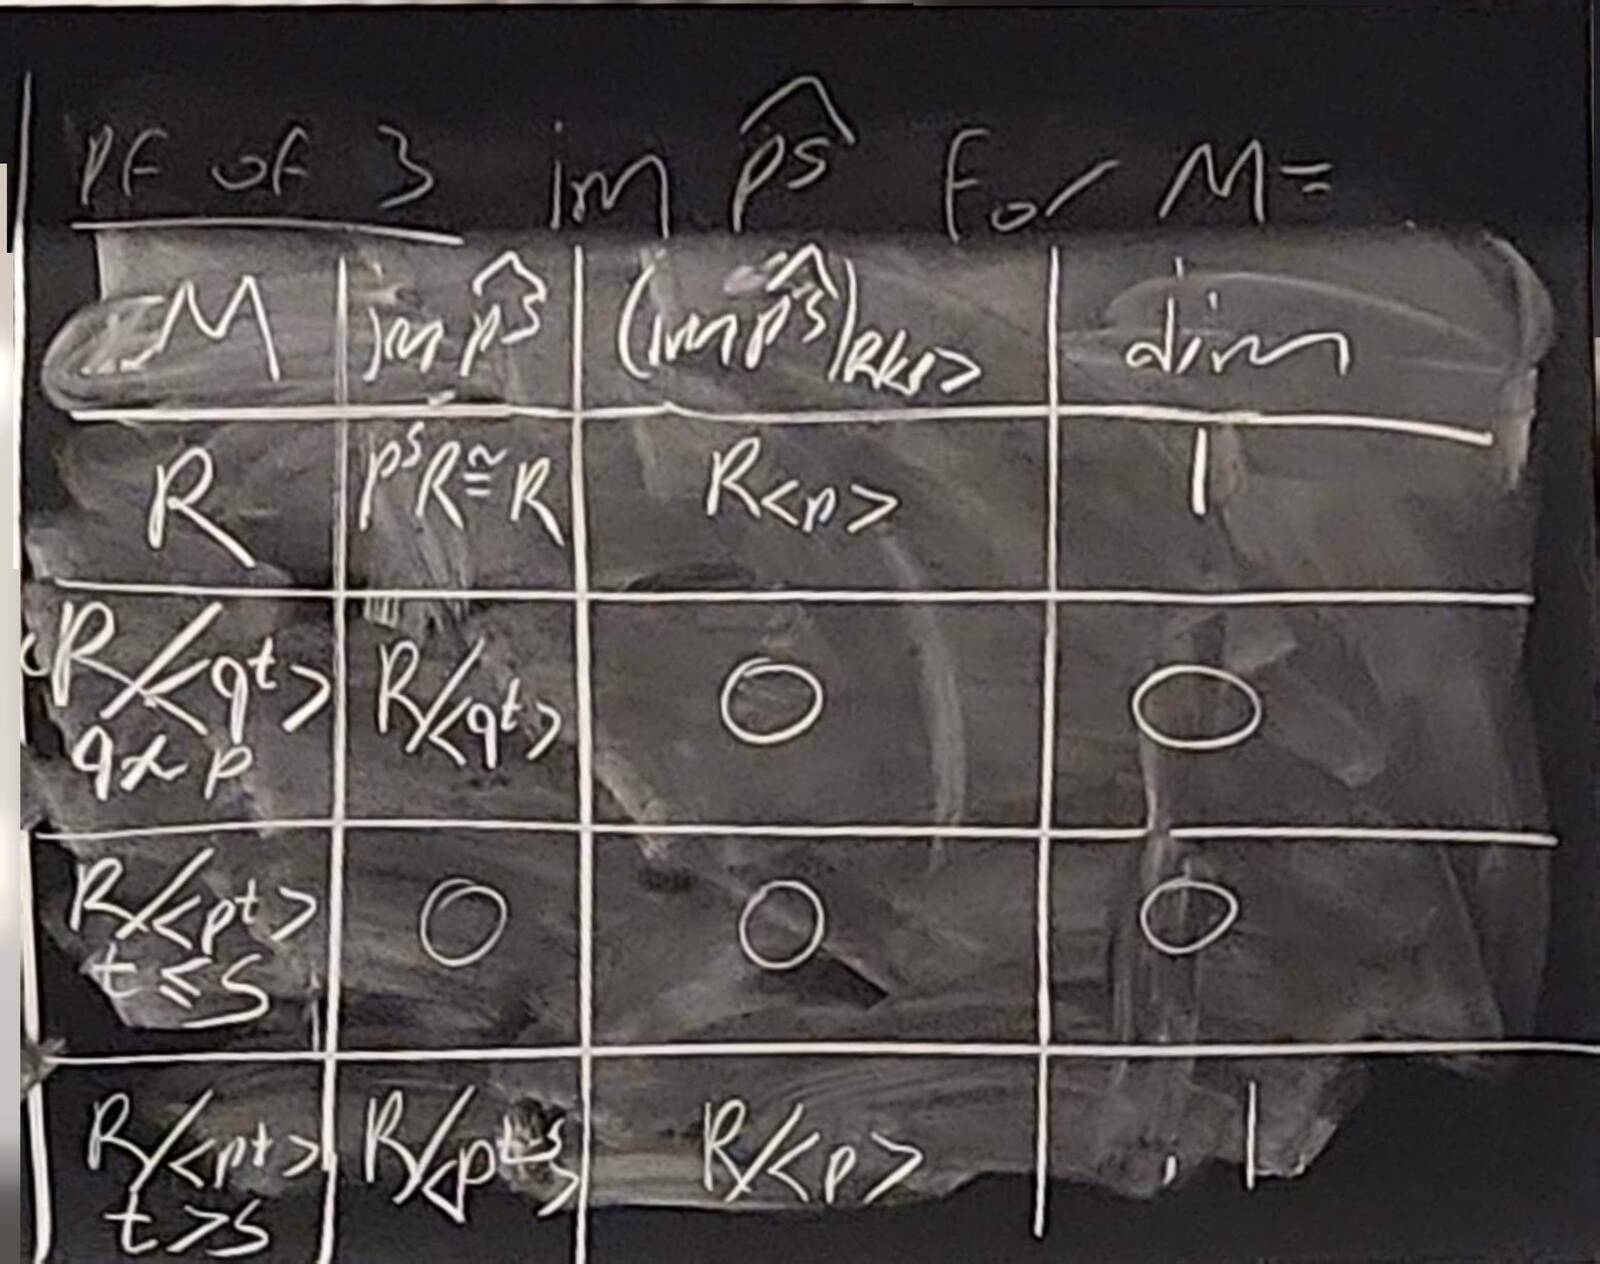 pf of 3 im p̂ˢ for M=
M | im p̂ˢ | (im p̂ˢ)R/<p> | dim
R | pˢR ≅ R | R<p> | 1
R/<qᵗ> q≁p | R/<qᵗ> | 0 | 0
R/<pᵗ> t≤s | 0 | 0 | 0
R/<pᵗ> t>s | R/<pᵗ⁻ˢ> | R/<p> | 1